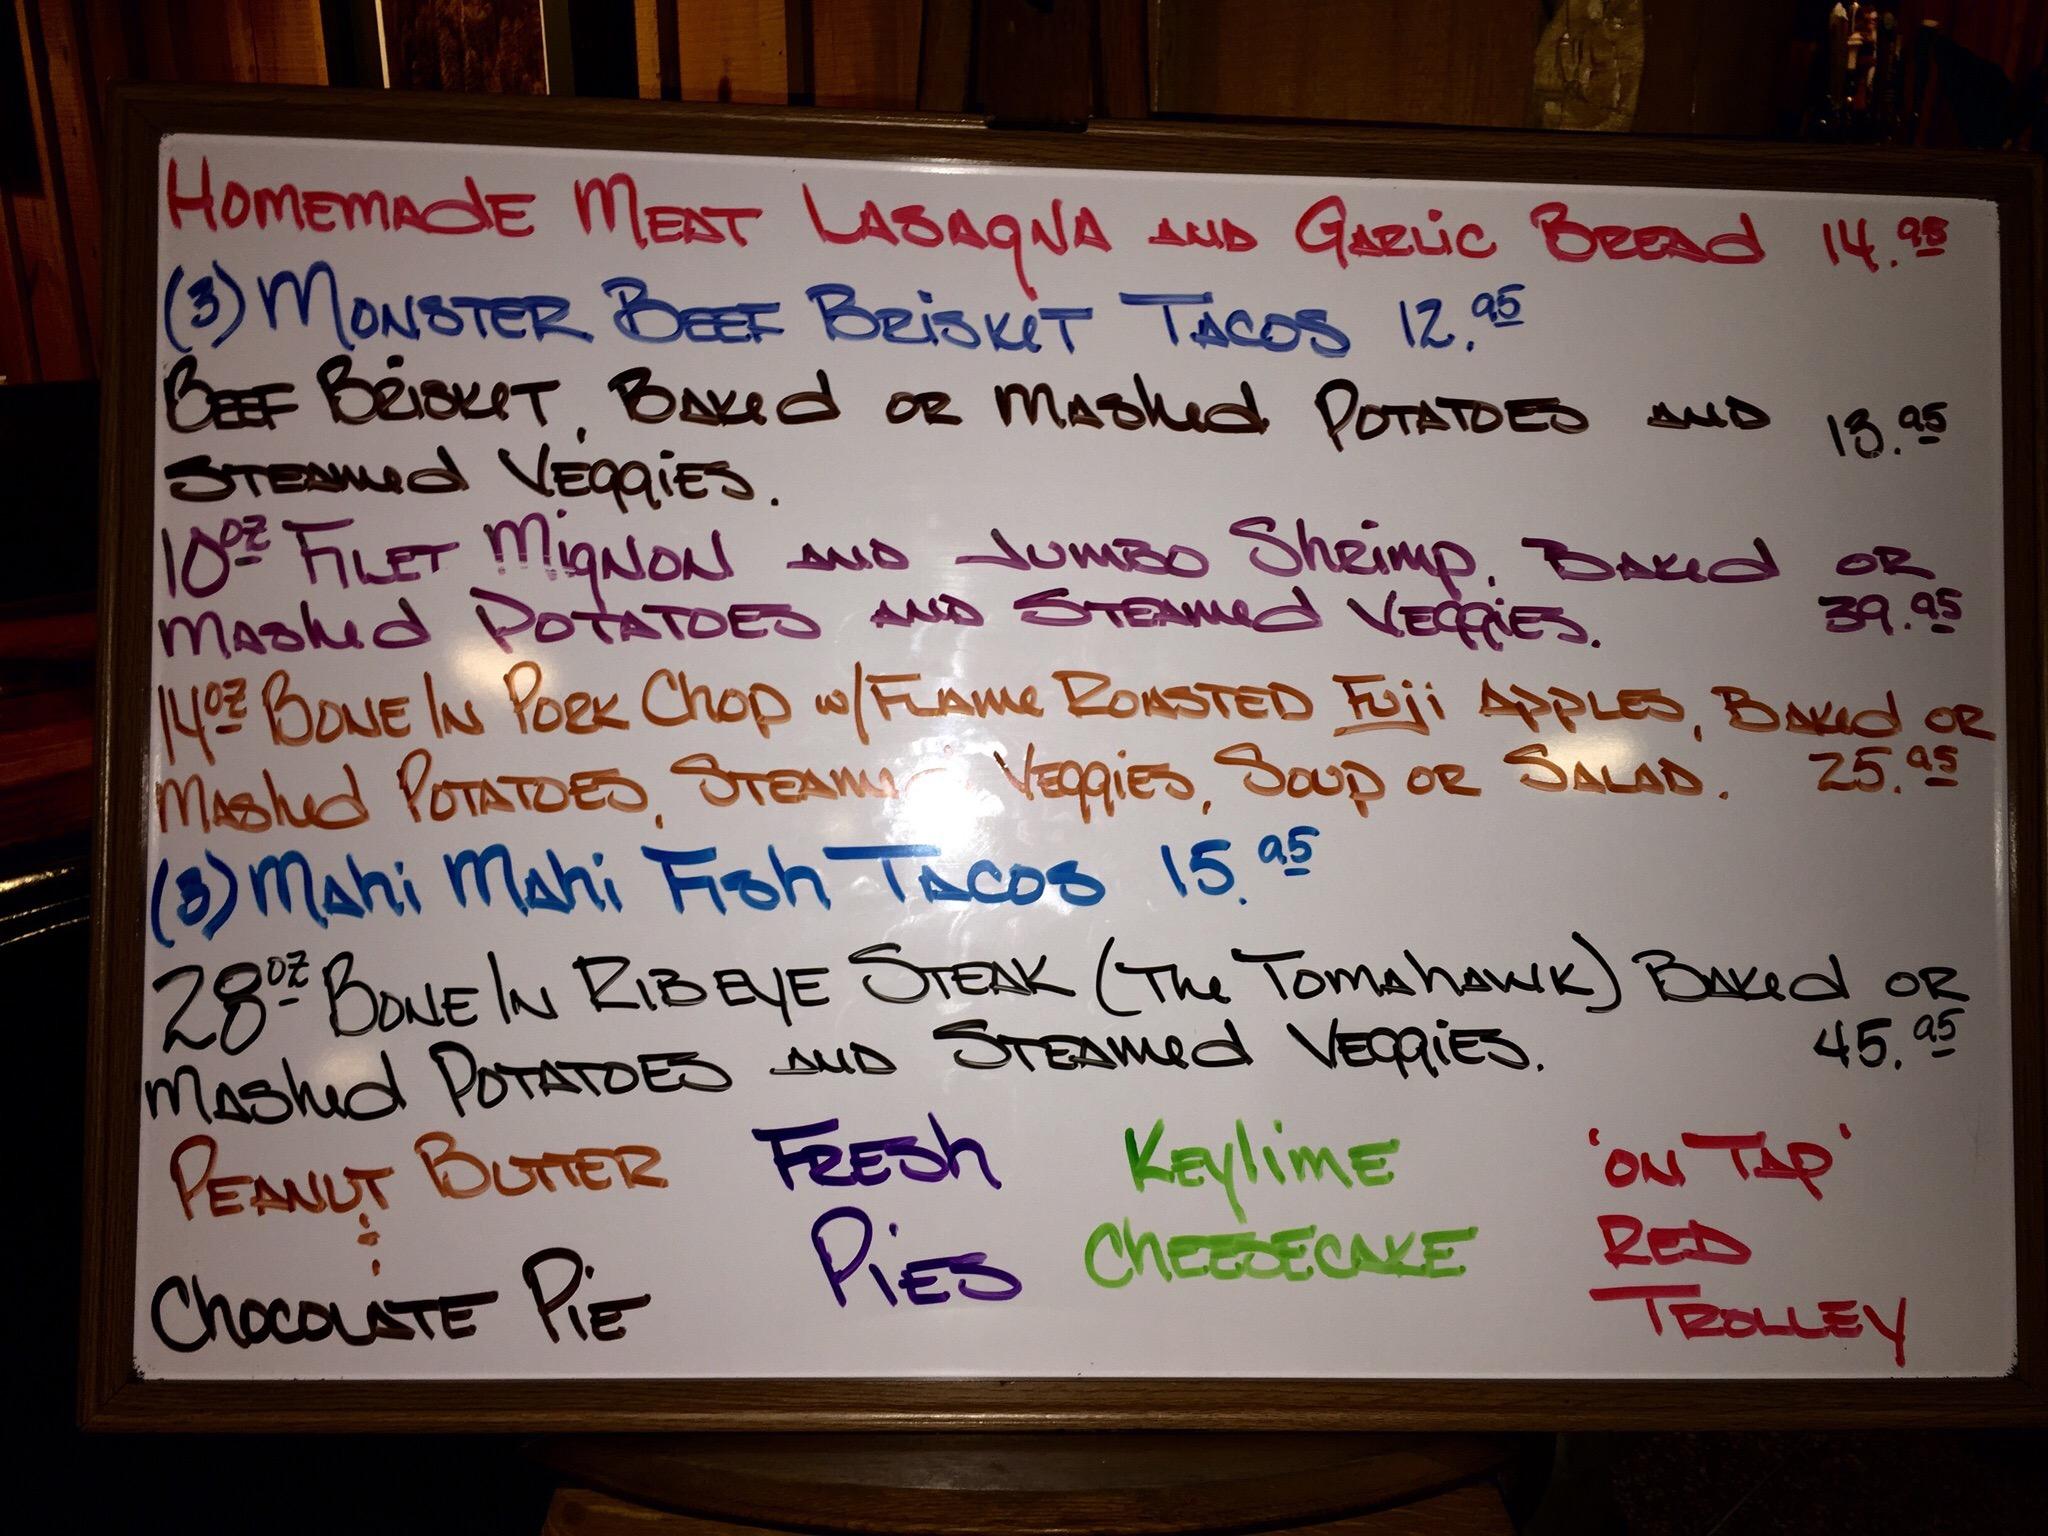 HOMEMADE MEAT LASAGNA AND GARLIC BREAD 14.95
(3) MONSTER BEEF BRISKET TACOS 12.95
BEEF BRISKET, BAKED OR MASHED POTATOES AND 13.95
STEAMED VEGGIES.
10oz FILET MIGNON AND JUMBO SHRIMP, BAKED OR
MASHED POTATOES AND STEAMED VEGGIES. 39.95
14oz BONE IN PORK CHOP w/FLAME ROASTED FUJI APPLES, BAKED OR
MASHED POTATOES, STEAMED VEGGIES, SOUP OR SALAD. 25.95
(3) MAHI MAHI FISH TACOS 15.95
28oz BONE IN RIBEYE STEAK (THE TOMAHAWK) BAKED OR
MASHED POTATOES AND STEAMED VEGGIES. 45.95
PEANUT BUTTER
CHOCOLATE PIE
FRESH
PIES
KEYLIME
CHEESECAKE
'ON TAP'
RED
TROLLEY